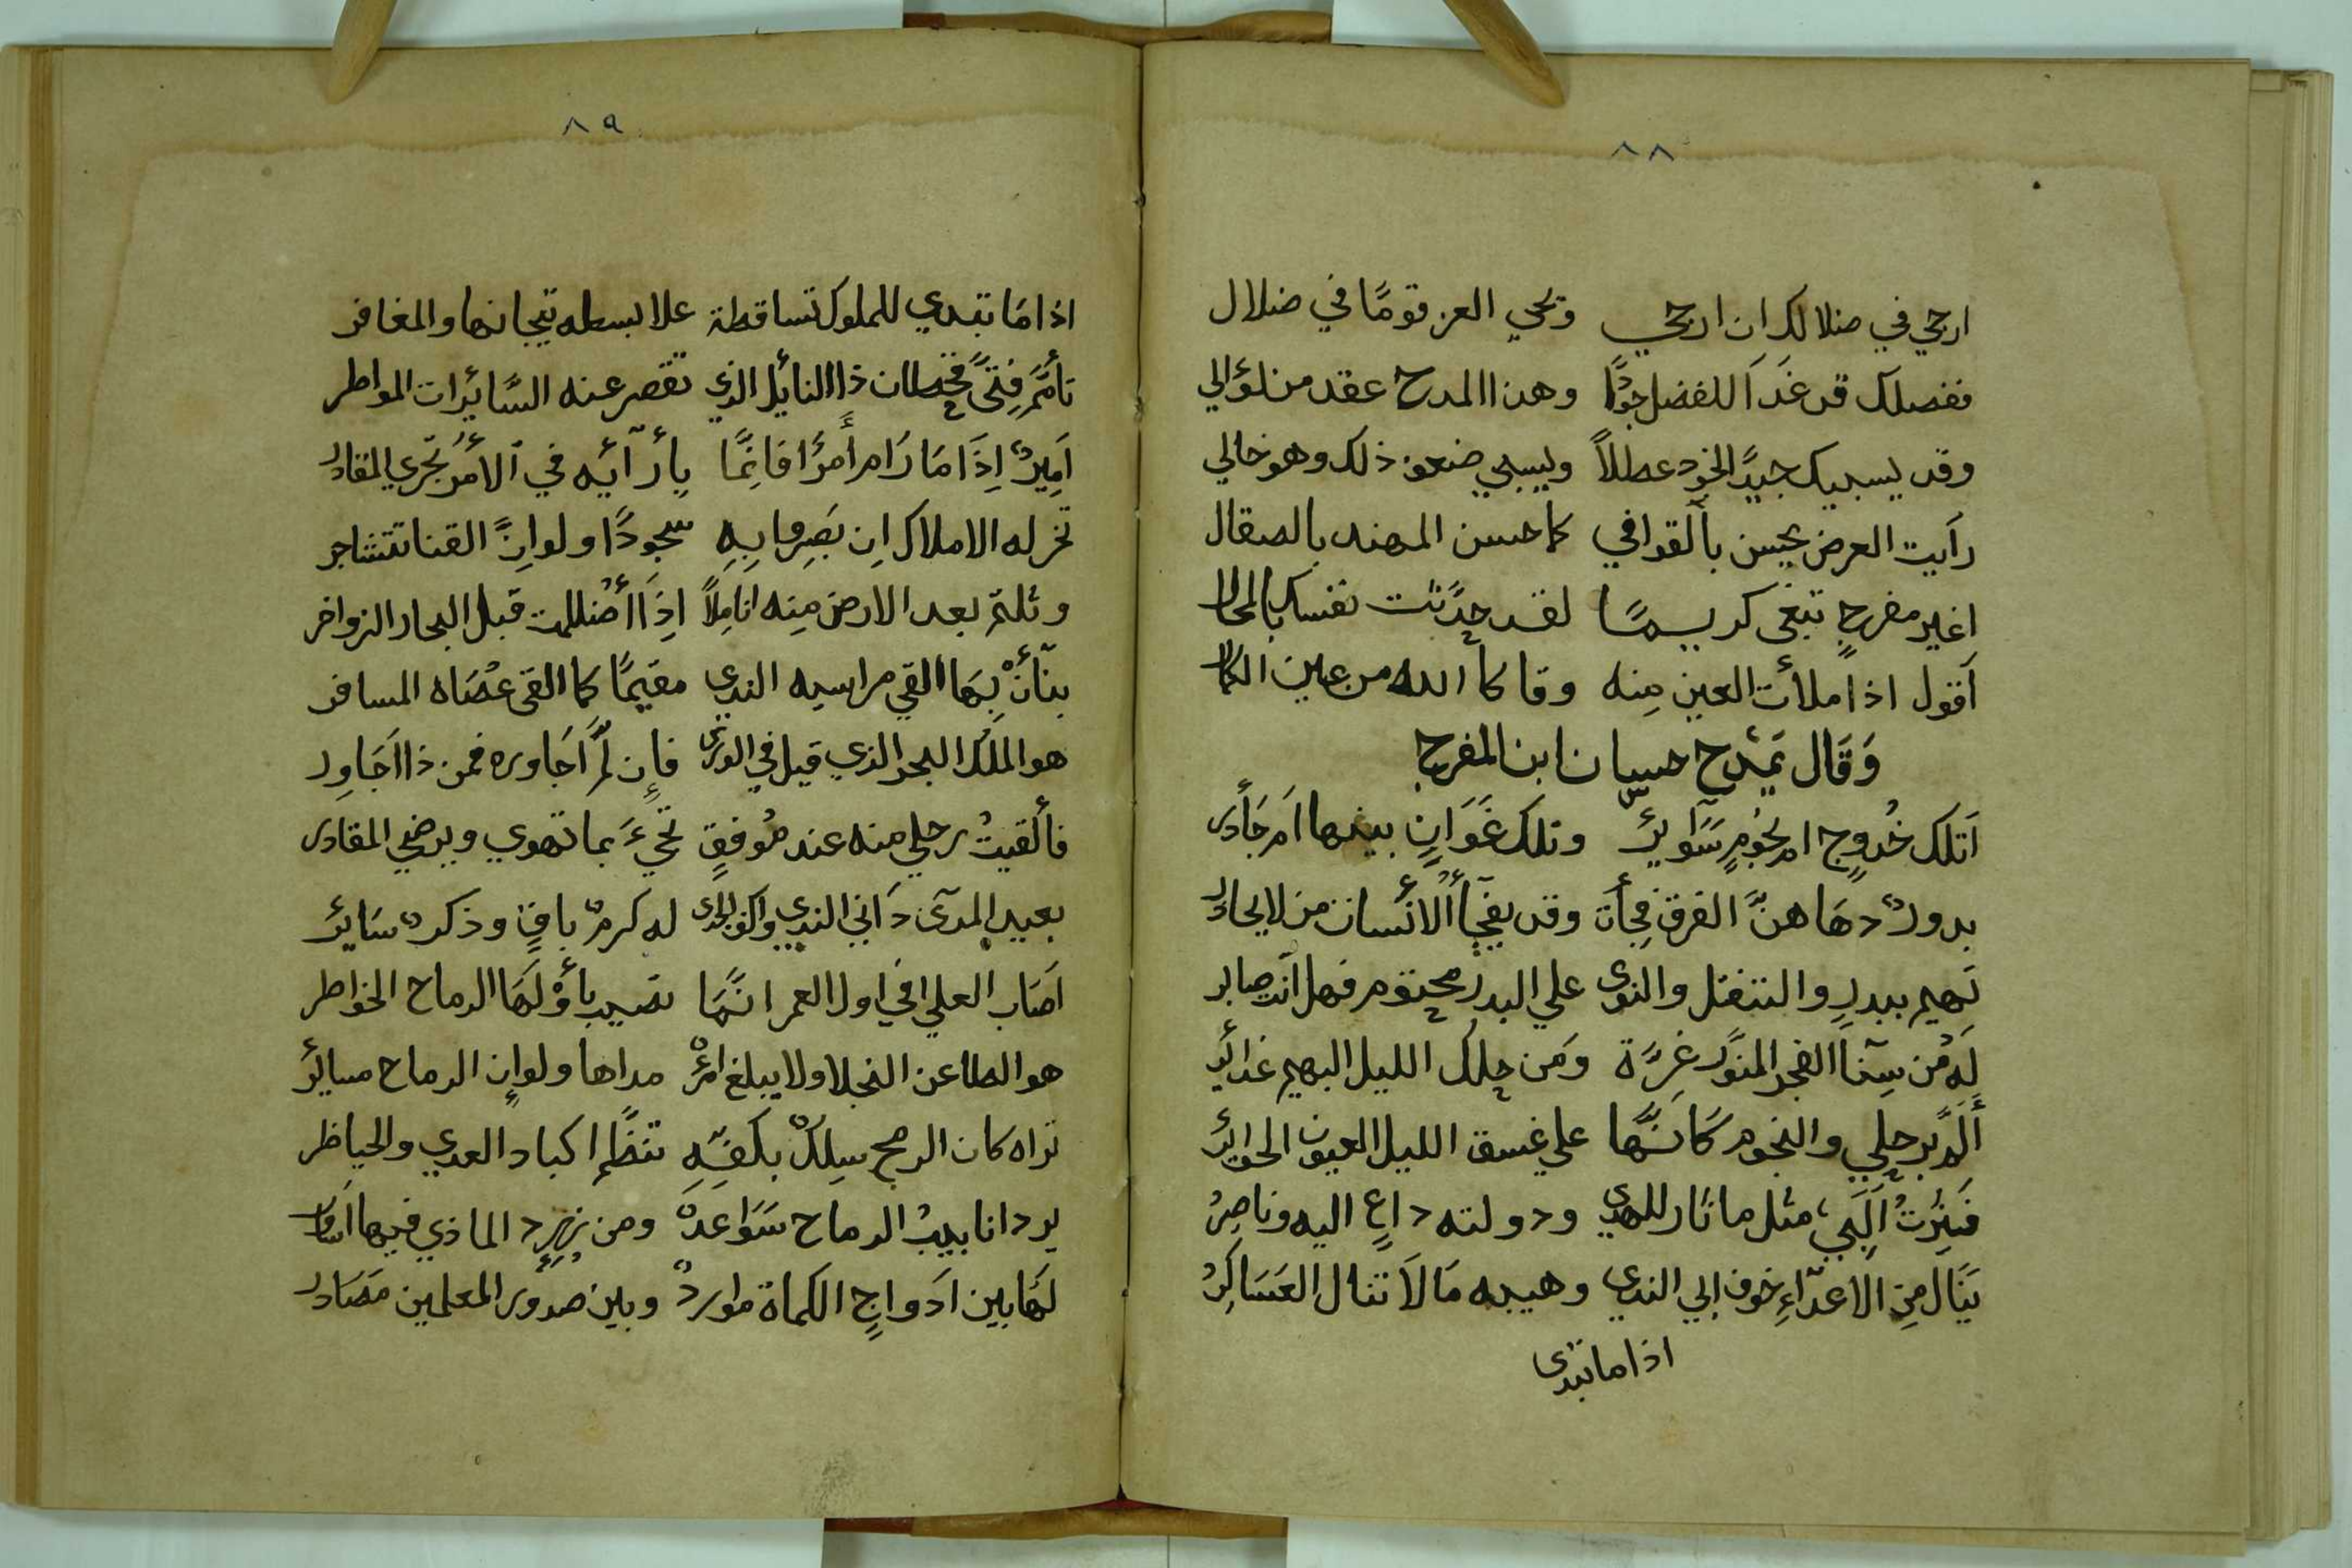 ٨٨
ارجي في ضلالك ان ارجي وتحي العز قومًا في ضلال
ففضلك قد غَدَا للفضل جودًا وهذا المدح عقد من لؤالي
وقد يسبيك جيدًا لخود عطلاً ويسبي ضعف ذلك وهو خالي
رايت العرض يحسن بالقوافي كما حسن المهند بالصقال
اغير مفرح تبغى كريمسًا لقد حدّثت نفسك بالمحال
اَقول اذا ملأت العين مِنه وقاكا الله من عين الكمال
وَقَال يَمْدَح حسان ابن المفرج
اَتلك خُدوج ام نجُومٍ سَوَآئِرٌ وتلك غَوَانٍ بينها ام جَآذر
بدورٌ دهَاهنَّ الفرق فجأة وقد يفجأ الانسان من لا يحاذر
تَهيم ببدرٍ والتنقل والنوى علي البدر محتوم فهل انت صابر
لَه من سِنَا الفجر المنوّر غِرّة وَمن حلك الليل البهيم غدائر
أَلَمَّ برحلي والنجوم كَانَّها علي غسق الليل العيون الحوائر
فَثِرتُ اِلَيَّ مثل ماثار للهدي ودولته داعٍ اليه وناصِرُ
يَنَال مِن الاعدَاءِ خوف ابي الندي وهيبه مَا لَا تنال العَسَاكِرُ
اذا ما تبدى
٨٩
اذا مَا تبدي للملوك تساقطة علا بسطه تيجانها والمغافر
تأمَّمَ فِتًى قحطان ذا النايل الذي تقصر عنه السَّايِرات المواطر
اَمِيرٌ اِذَا مَا رَام أمرًا فَانِمَّا بِأرآئِه في الأمُر تجري المقادر
تخر له الاملاك اِن بَصِروا بِهِ سجودًا ولو اِنَّ القنا تتشاجر
وتلثم بعد الارض مِنه اناملاً اِذَا أضللت قبل البحار الزواخر
بنَأنْ بِهَا القي مراسيه الندي مقيمًا كما القى عَصَاه المسافر
هو الملك البحر الذي قيل في الورى فاِن لّم اَجَاوره فمن ذا اَجَاوِر
فألقيتُ رحلي منه عند مُوفقٍ تجيءَ بما تهوي ويرضي المقادر
بعيد المدَى دَاني الندي واكف الجدى له كرمٌ باقٍ وذكرٌ سَايرُ
اصَاب العلي في اول العمر انَّهَا تصيب بأوْلَهَا الرماح الخواطر
هو الطاعن النجلا ولا يبلغ امرٌ مداها ولو اِن الرماح مسائرُ
تراه كان الرمح سِلكٌ بكفّهِ تنظِّم اكباد العدي والحياظر
يرد انابيبُ الرماح سَوَاعدَهْ ومن بُرد الماذي فيها اساور
لَهَا بين اَدَواجِ الكماة مواردٌ وبين صدور المعلمين مَصَادر